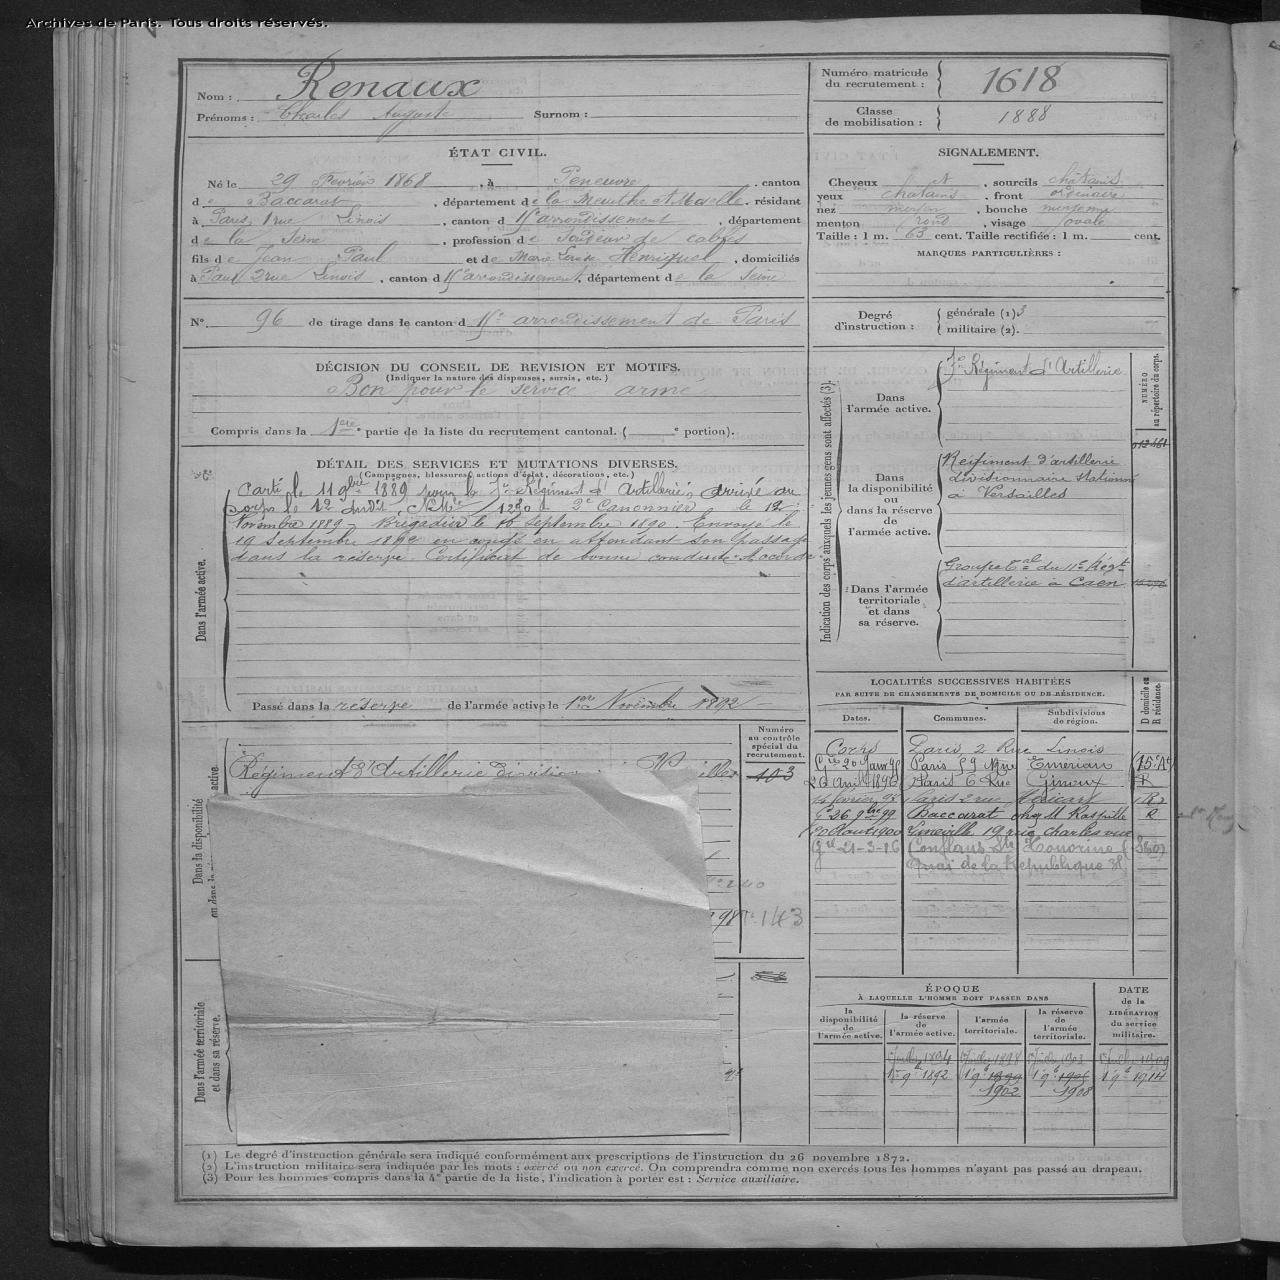 Archives de Paris. Tous droits réservés.
Nom : Renaux
Prénoms : Charles Auguste Surnom :
Numéro matricule du recrutement : 1618
Classe de mobilisation : 1888
ÉTAT CIVIL.
Né le 29 Février 1868 à , canton
de Baccarat , département de la Meurthe et Moselle, résidant
à Paris, 1 rue Linois , canton d 15e arrondissement , département
de la Seine , profession de de
fils de Jean Paul et de Marie Louise Henriquel , domiciliés
à Paris 2 rue Linois , canton d 15e arrondissement, département de la Seine
N° 96 de tirage dans le canton d 15e arrondissement de Paris
SIGNALEMENT.
Cheveux et , sourcils châtains
yeux châtains , front ordinaire
nez moyen , bouche moyenne
menton rond , visage ovale
Taille : 1 m. 63 cent. Taille rectifiée : 1 m. cent.
MARQUES PARTICULIÈRES :
Degré d'instruction : générale (1) 3
militaire (2).
DÉCISION DU CONSEIL DE REVISION ET MOTIFS.
(Indiquer la nature des dispenses, sursis, etc.)
Bon pour le service armé
Compris dans la 1ere partie de la liste du recrutement cantonal. ( e portion).
DÉTAIL DES SERVICES ET MUTATIONS DIVERSES.
(Campagnes, blessures, actions d'éclat, décorations, etc.)
Dans l'armée active.
le 11 9bre 1889 pour le Régiment d'Artillerie, arrivé au
corps le 12 dudit, N° Mle 1230 2e Canonnier le 12
Novembre 1889 - Brigadier le 10 Septembre 1890. Envoyé le
19 Septembre 1892 en congé en attendant son passage
dans la réserve Certificat de bonne conduite Accordé
Passé dans la réserve de l'armée active le 1er Novembre 1892
Indication des corps auxquels les jeunes gens sont affectés (3).
NUMÉRO au répertoire du corps.
Dans l'armée active.
Régiment d'Artillerie
Dans la disponibilité ou dans la réserve de l'armée active.
Régiment d'artillerie
divisionnaire stationné
à Versailles
Dans l'armée territoriale et dans sa réserve.
Groupe tal du 11e Régt
d'artillerie à Caen
Numéro au contrôle spécial du recrutement.
Dans la disponibilité
ou dans la
active
Régiment d'Artillerie
103
143
Dans l'armée territoriale et dans sa réserve.
LOCALITÉS SUCCESSIVES HABITÉES
PAR SUITE DE CHANGEMENTS DE DOMICILE OU DE RÉSIDENCE.
Dates. Communes. Subdivisions de région. D domicile ou R résidence.
Paris 2 Rue Linois
20 Janv 95 Paris 59 Rue Emeriau
26 Avril 1896 Paris 6 Rue Ginoux R
Paris 2 rue Héricart R
26 9bre 99 Baccarat chez M R
20 Aout 1900 Lunéville 19 rue Charles vue
21-3-16 Conflans Ste Honorine
Quai de la République 38
ÉPOQUE
À LAQUELLE L'HOMME DOIT PASSER DANS
DATE de la LIBÉRATION du service militaire.
la disponibilité de l'armée active. la réserve de l'armée active. l'armée territoriale. la réserve de l'armée territoriale.
1894 1898 1903 1909
1er 9bre 1892 1 9bre 1899 1 9bre 1905 1 9bre 1914
1902 1908
(1) Le degré d'instruction générale sera indiqué conformément aux prescriptions de l'instruction du 26 novembre 1872.
(2) L'instruction militaire sera indiquée par les mots : exercé ou non exercé. On comprendra comme non exercés tous les hommes n'ayant pas passé au drapeau.
(3) Pour les hommes compris dans la 4e partie de la liste, l'indication à porter est : Service auxiliaire.